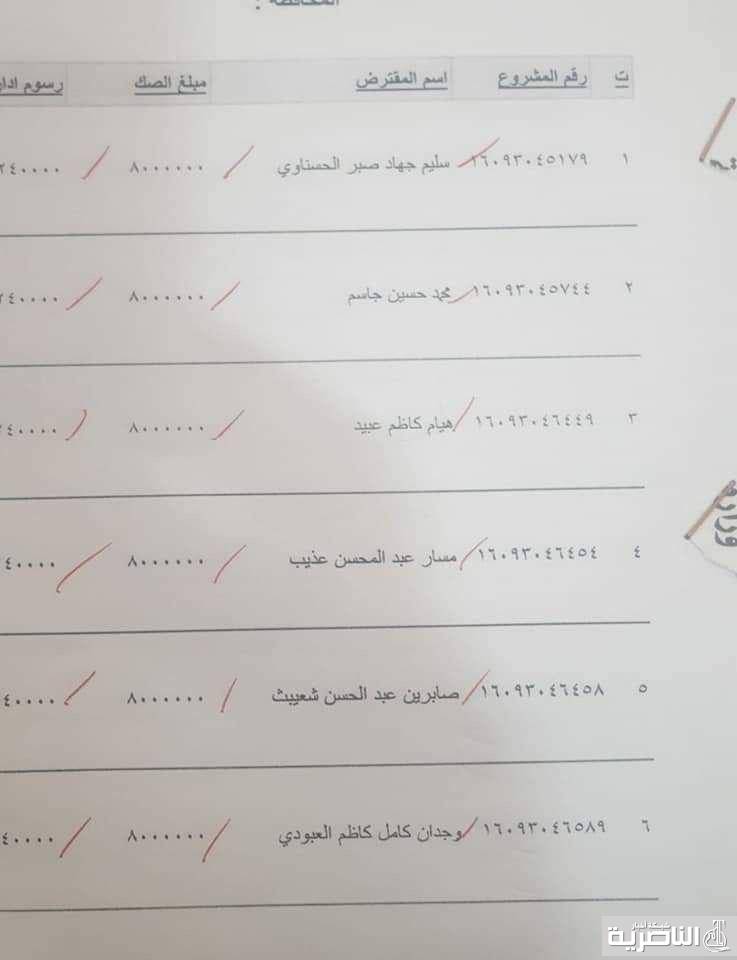 المحافظة :
ت رقم المشروع اسم المقترض مبلغ الصك رسوم ادار
١ ١٦٠٩٣٠٤٥١٧٩ سليم جهاد صبر الحسناوي ٨٠٠٠٠٠٠ ٢٤٠٠٠٠
٢ ١٦٠٩٣٠٤٥٧٤٤ محمد حسين جاسم ٨٠٠٠٠٠٠ ٢٤٠٠٠٠
٣ ١٦٠٩٣٠٤٦٤٤٩ هيام كاظم عبيد ٨٠٠٠٠٠٠ ٢٤٠٠٠٠
٤ ١٦٠٩٣٠٤٦٤٥٤ مسار عبد المحسن عذيب ٨٠٠٠٠٠٠ ٤٠٠٠٠
٥ ١٦٠٩٣٠٤٦٤٥٨ صابرين عبد الحسن شعيبث ٨٠٠٠٠٠٠ ٤٠٠٠٠
٦ ١٦٠٩٣٠٤٦٥٨٩ وجدان كامل كاظم العبودي ٨٠٠٠٠٠٠ ٤٠٠٠٠
وزارة
شبكة أخبار
الناصرية